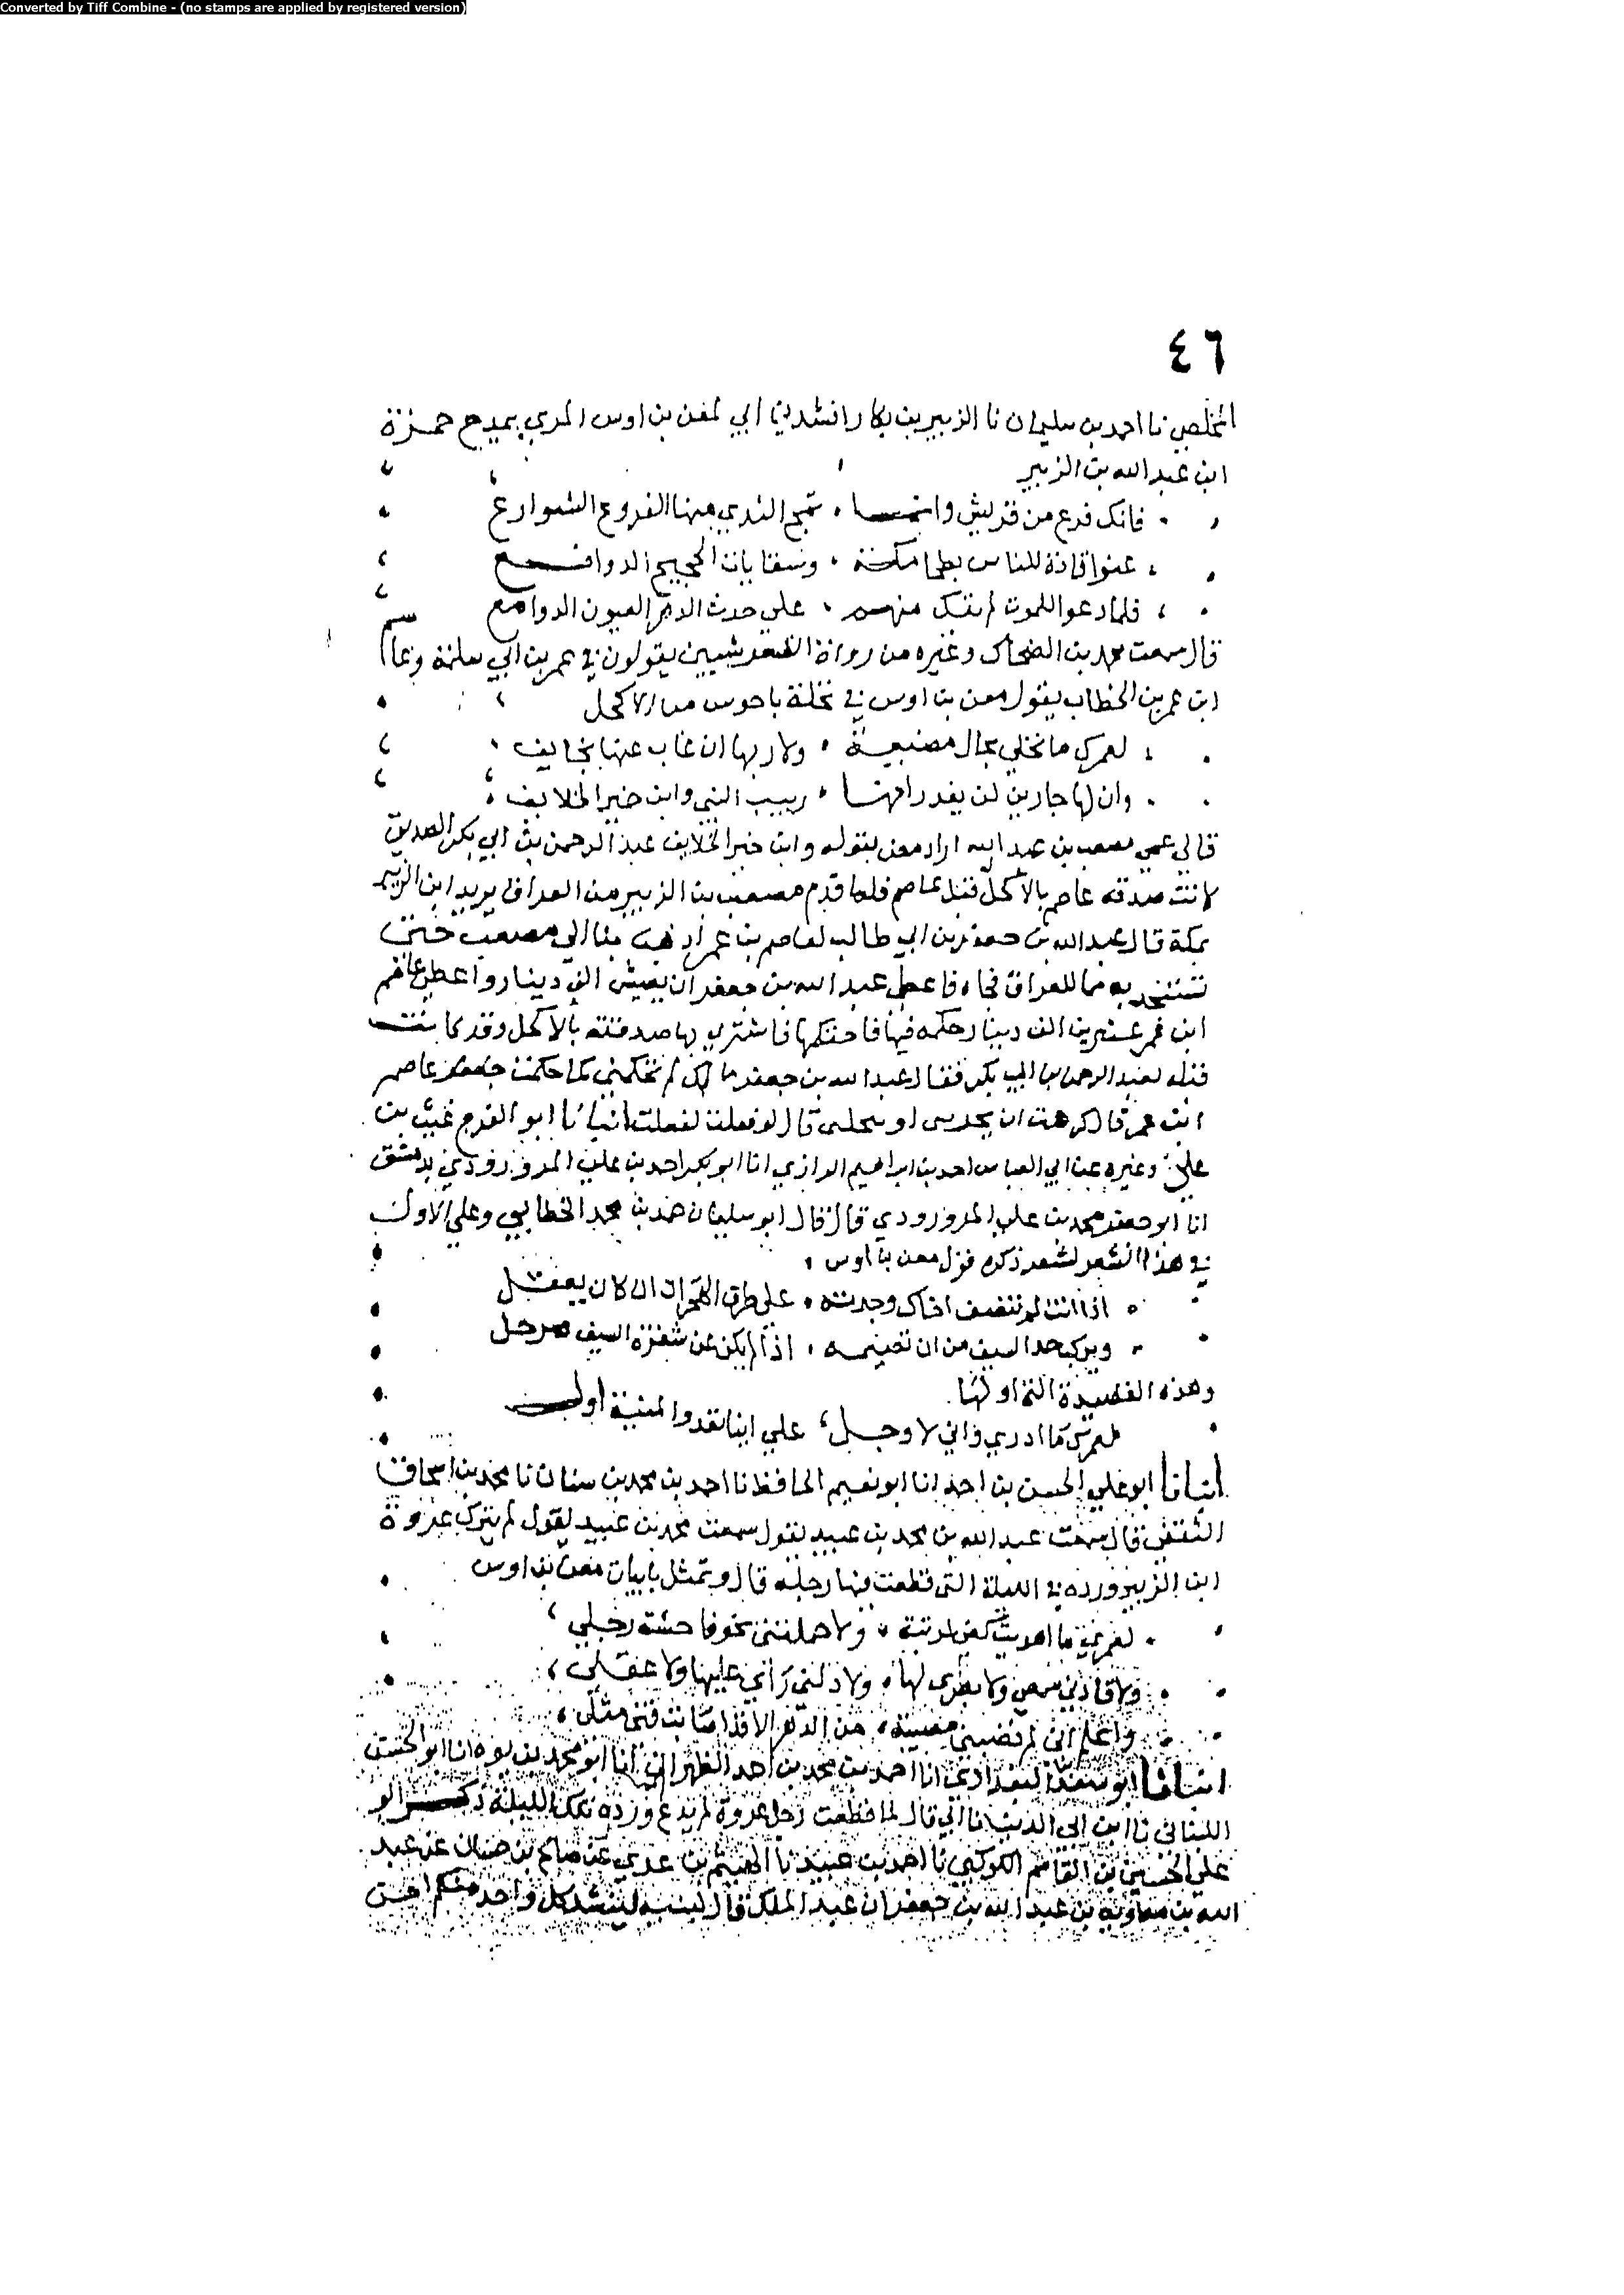 Converted by Tiff Combine - (no stamps are applied by registered version)
٤٦
المخلص نا احمد بن سليمان نا الزبير بن بكار انشدني ابي لمعن بن اوس المري يمدح حمزة
ابن عبد الله بن الزبير
فانك فرع من قريش وانما تمج الندي منها الفروع الشوارع
عنوا قادة للناس بطحا مكة وسقايات الحجيج الدوافع
فلما دعوا للموت لم تبك منهم علي حدث الدهر العيون الدوامع
قال سمعت محمد بن الضحاك وغيره من رواة القرشيين يقولون في عمر بن ابي سلمة وعاصم
ابن عمر بن الخطاب يقول معن بن اوس في نخلة الاكحل
لعمرك ما نخلي بحال مضيعة ولا ربها ان غاب عنها بخايف
وان لها جارين لن يغدرا بها ربيب النبي وابن خير الخلايف
قال لي عمي مصعب بن عبد الله اراد معن بقوله وابن خير الخلايف عبد الرحمن بن ابي بكر الصديق
كانت صدقة عاصم بالاكحل قبل عاصم فلما قدم مصعب بن الزبير من العراق يريد ابن الزبير
بمكة قال عبد الله بن جعفر بن ابي طالب لعاصم بن عمر اذهب بنا الي مصعب حتي
للعراق فجاه فاعطي عبد الله بن جعفر الف دينار واعطي عاصم
ابن عمر عشرين الف دينار حكمه فيها فاحتكمها فاشتري بها صدقته بالاكحل وقد كانت
قبله لعبد الرحمن بن ابي بكر فقال عبد الله بن جعفر ما لك لم تحكمني كما حكمت عاصم
ابن عمر قال كرهت ان او قال لو فعلت لفعلت انبانا ابو الفرج غيث بن
علي وغيره عن ابي العباس احمد بن ابراهيم الرازي انا ابو بكر احمد بن علي المروزرودي بدمشق
انا ابو جعفر محمد بن علي المروزرودي قال قال ابو سليمان حمد بن محمد الخطابي وعلي الاول
في هذا الشعر لشعر ذكره قول معن بن اوس
اذا انت لم تنصف اخاك وجدته علي طرف الهجران ان كان يعقل
ويركب حد السيف من ان تضيمه اذا لم يكن عن شفرة السيف مزحل
وهذه القصيدة التي اولها
لعمرك ما ادري واني لاوجل علي اينا تغدوا المنية اول
انبانا ابو علي الحسن بن احمد انا ابو نعيم الحافظ نا احمد بن محمد بن سنان نا محمد بن اسحاق
الثقفي قال سمعت عبد الله بن محمد بن عبيد يقول سمعت محمد بن عبيد يقول لم يترك عروة
ابن الزبير ورده في الليلة التي قطعت فيها رجله قال وتمثل بابيات معن بن اوس
لعمري ما اهويت كفي لريبة ولا حملتني نحو فاحشة رجلي
ولا قادني سمعي ولا بصري لها ولا دلني رايي عليها ولا عقلي
واعلم اني لم تصبني مصيبة من الدهر الا قد اصابت فتي مثلي
انبانا ابو سعد البغدادي انا احمد بن محمد بن احمد الطهراني انا ابو محمد بن يوه انا ابو الحسن
اللنباني نا ابن ابي الدنيا نا ابي قال لما قطعت رجل عروة لم يدع ورده تلك الليلة ذكر ابو
علي الحسين بن القاسم الكوكبي نا احمد بن عبيد نا الهيثم بن عدي عن صالح بن حسان عن عبد
الله بن معاوية بن عبد الله بن جعفر ان عبد الملك قال لبنيه لينشد كل واحد منكم احسن